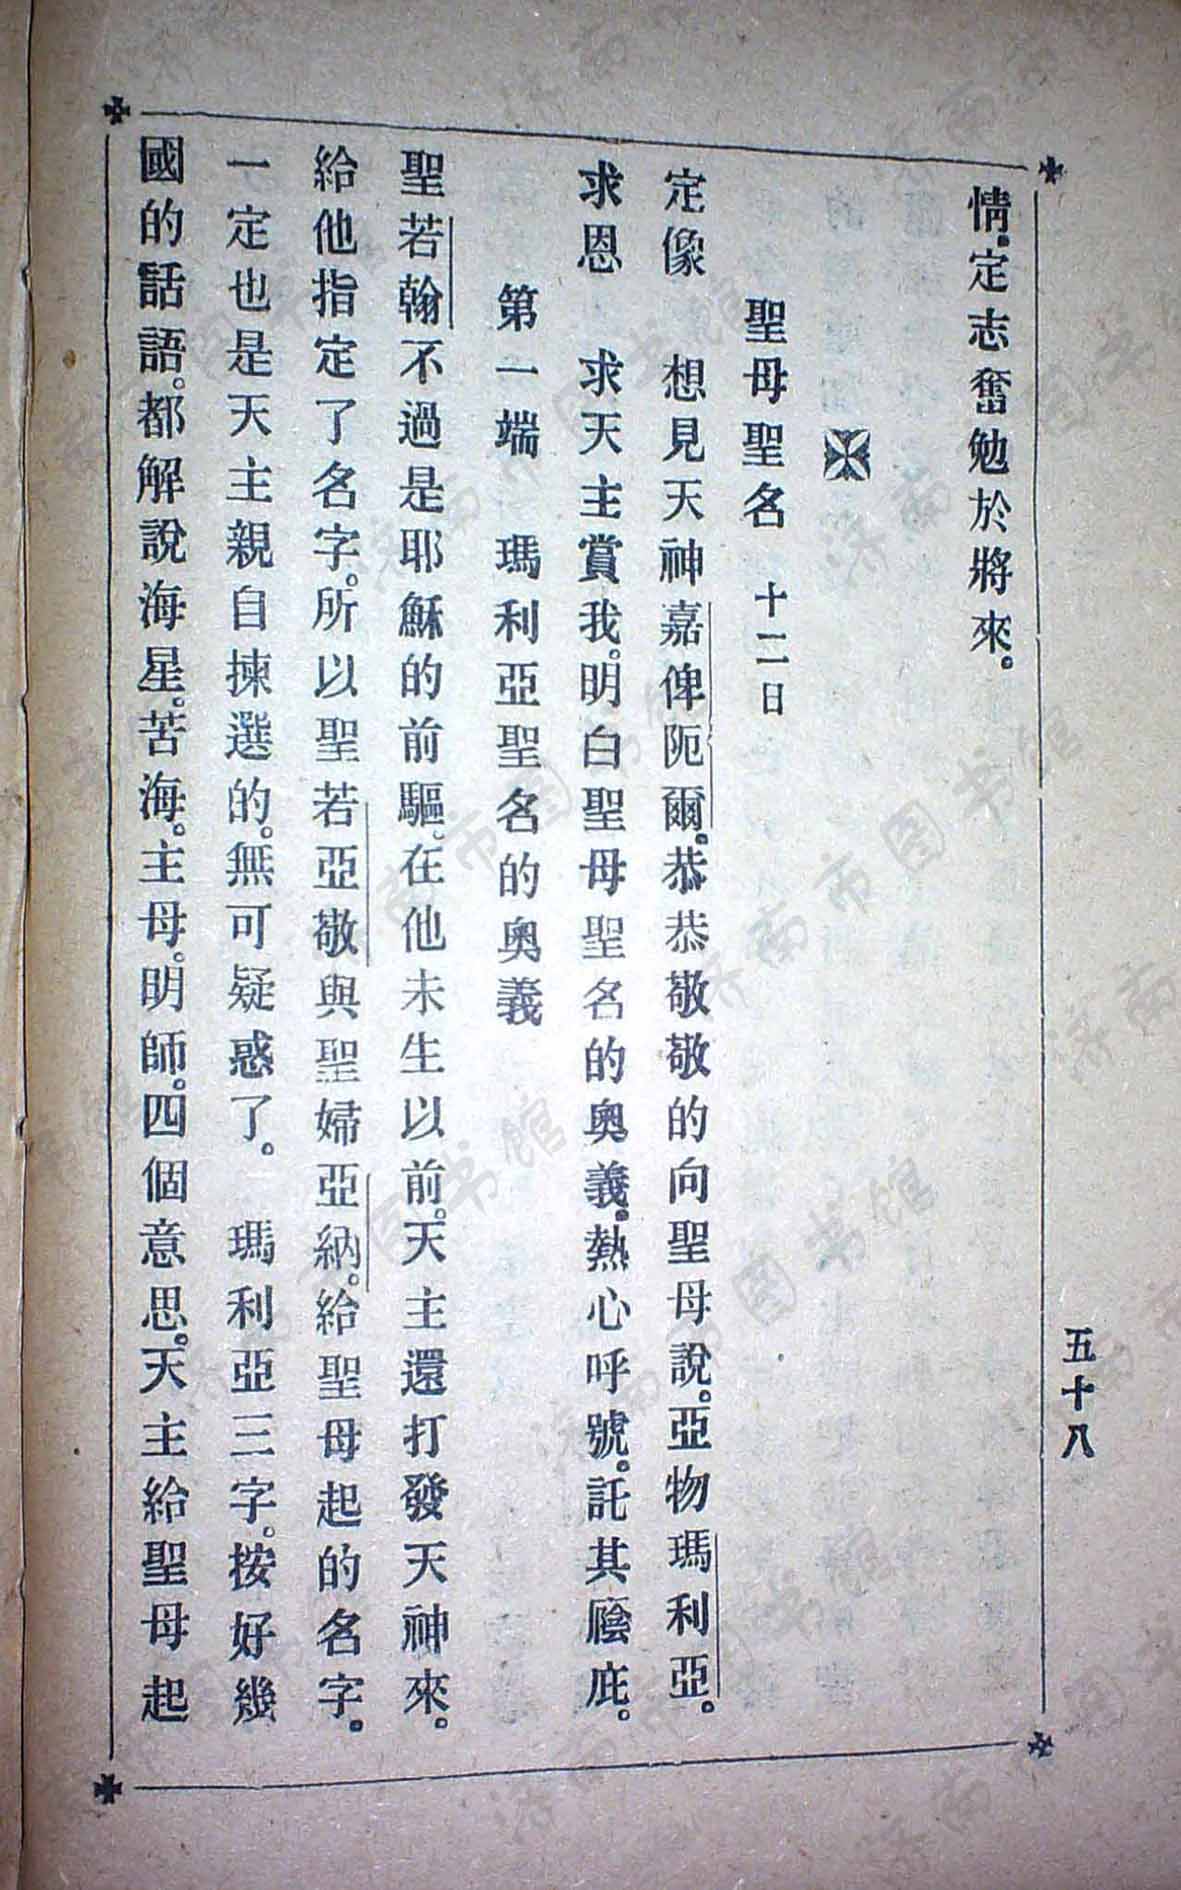 五十八
情。定志奮勉於將來。
聖母聖名 十二日
定像 想見天神嘉俾阨爾。恭恭敬敬的向聖母說。亞物瑪利亞。
求恩 求天主賞我。明白聖母聖名的奧義。熱心呼號。託其廕庇。
第一端 瑪利亞聖名的奧義
聖若翰不過是耶穌的前驅。在他未生以前。天主還打發天神來。
給他指定了名字。所以聖若亞敬與聖婦亞納。給聖母起的名字。
一定也是天主親自揀選的。無可疑惑了。 瑪利亞三字。按好幾
國的話語。都解說海星。苦海。主母。明師。四個意思。天主給聖母起
济南市图书馆